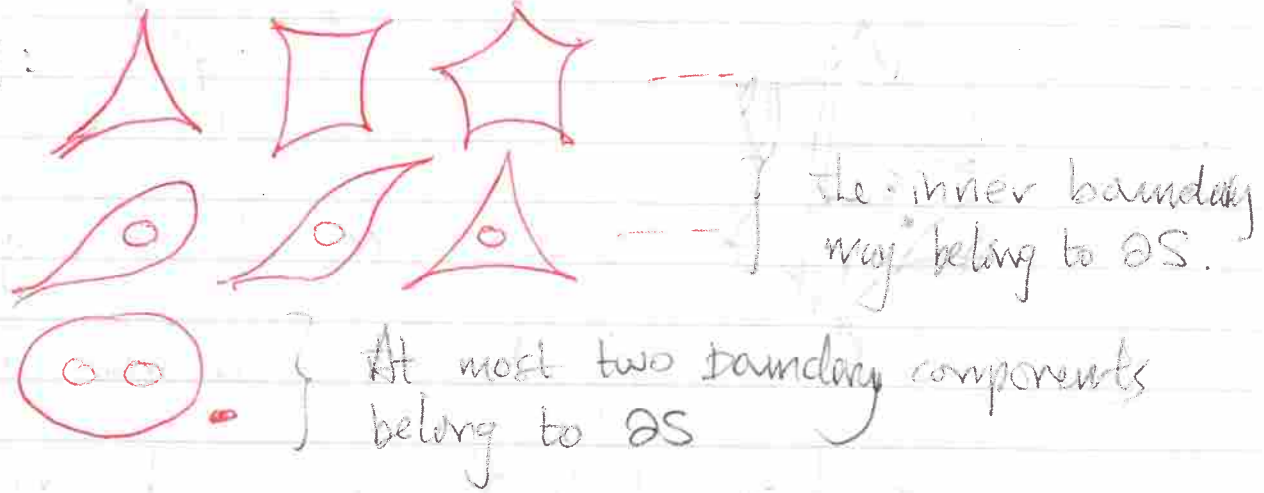 the inner boundary
may belong to ∂S.
At most two boundary components
belong to ∂S